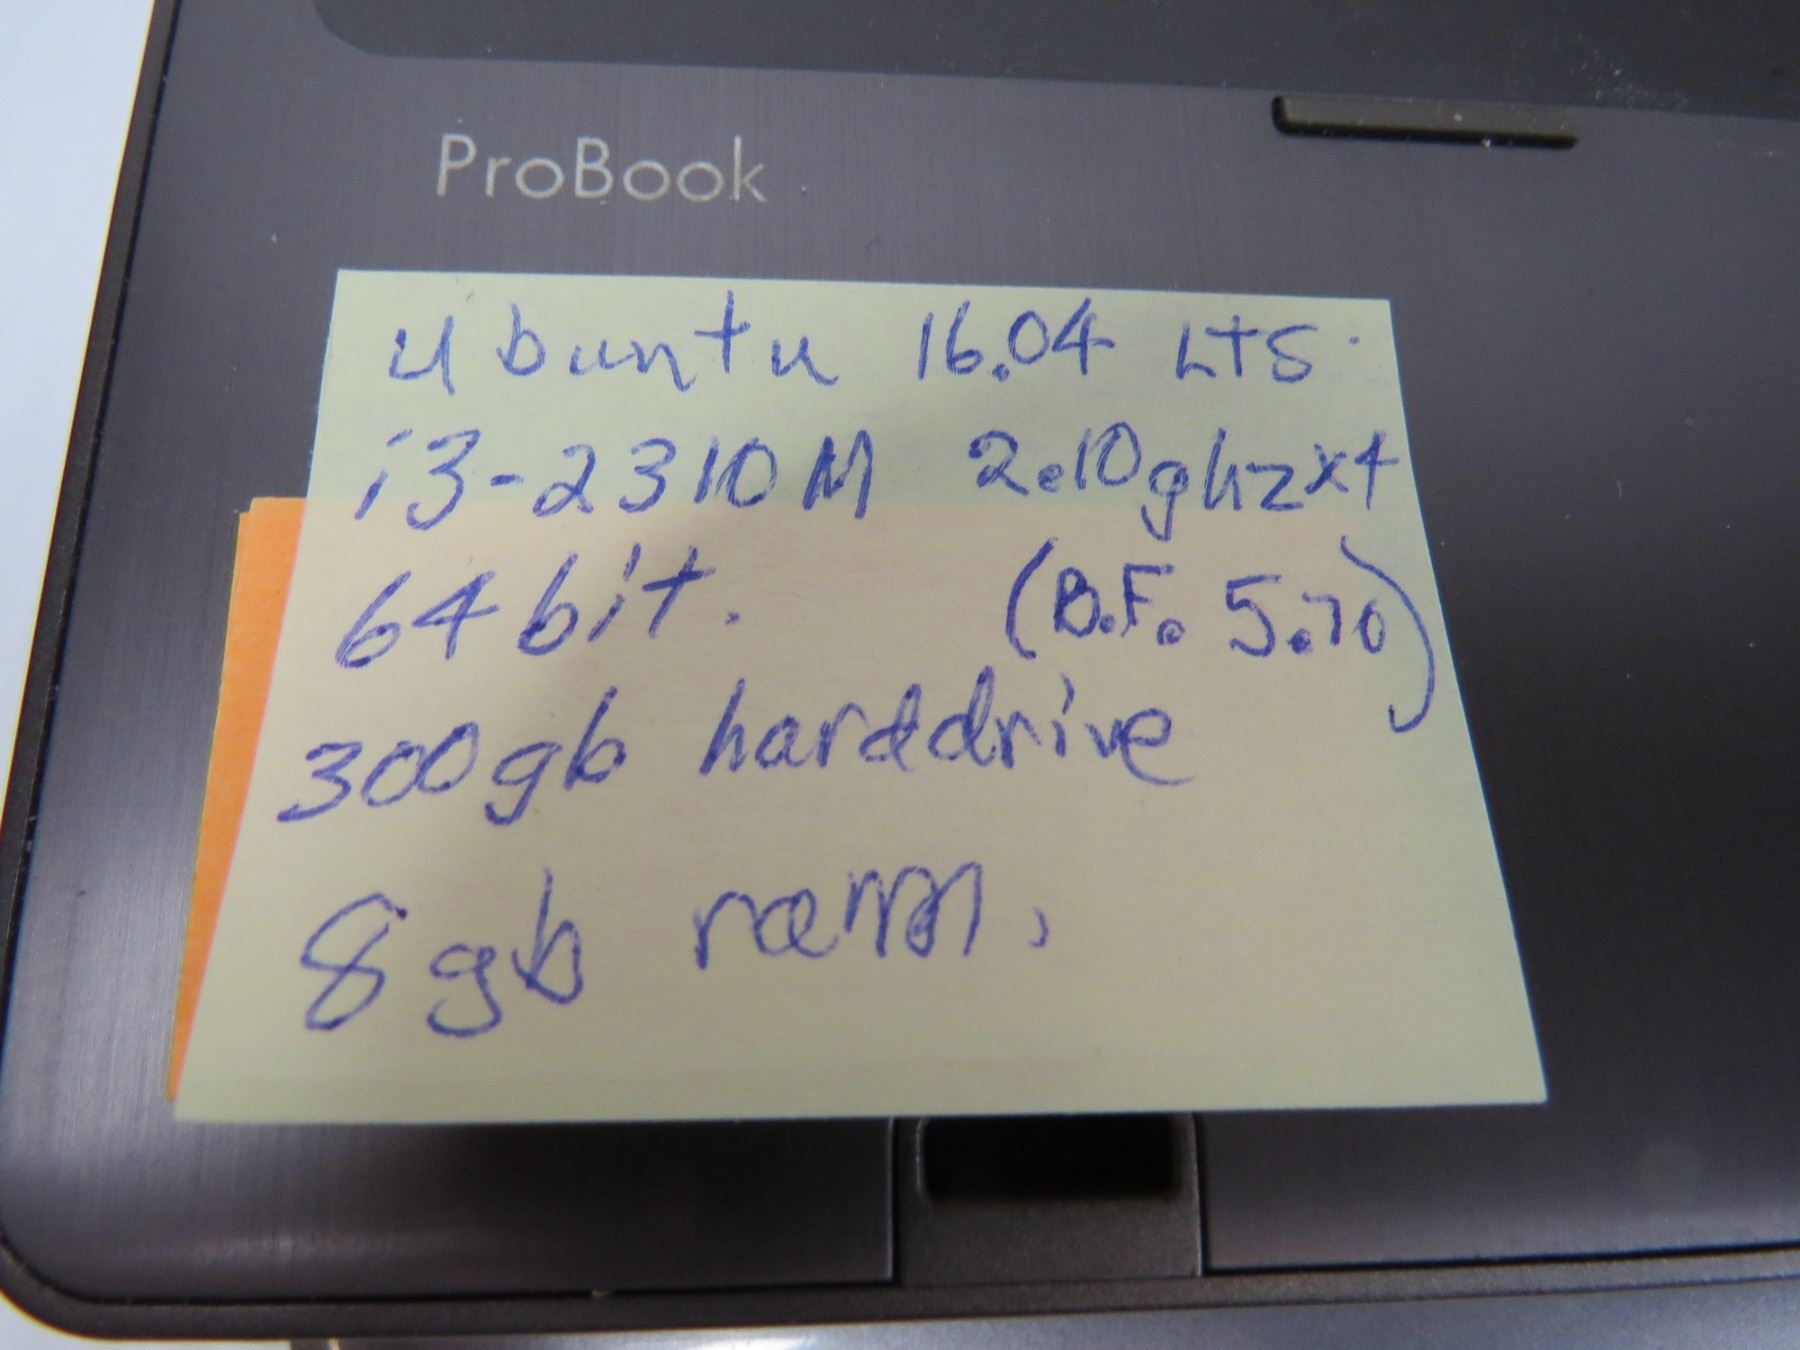 ProBook
Ubuntu 16.04 LTS.
i3-2310M 2.10ghzx4
64bit. (B.F. 5.70)
300gb harddrive
8gb ram.